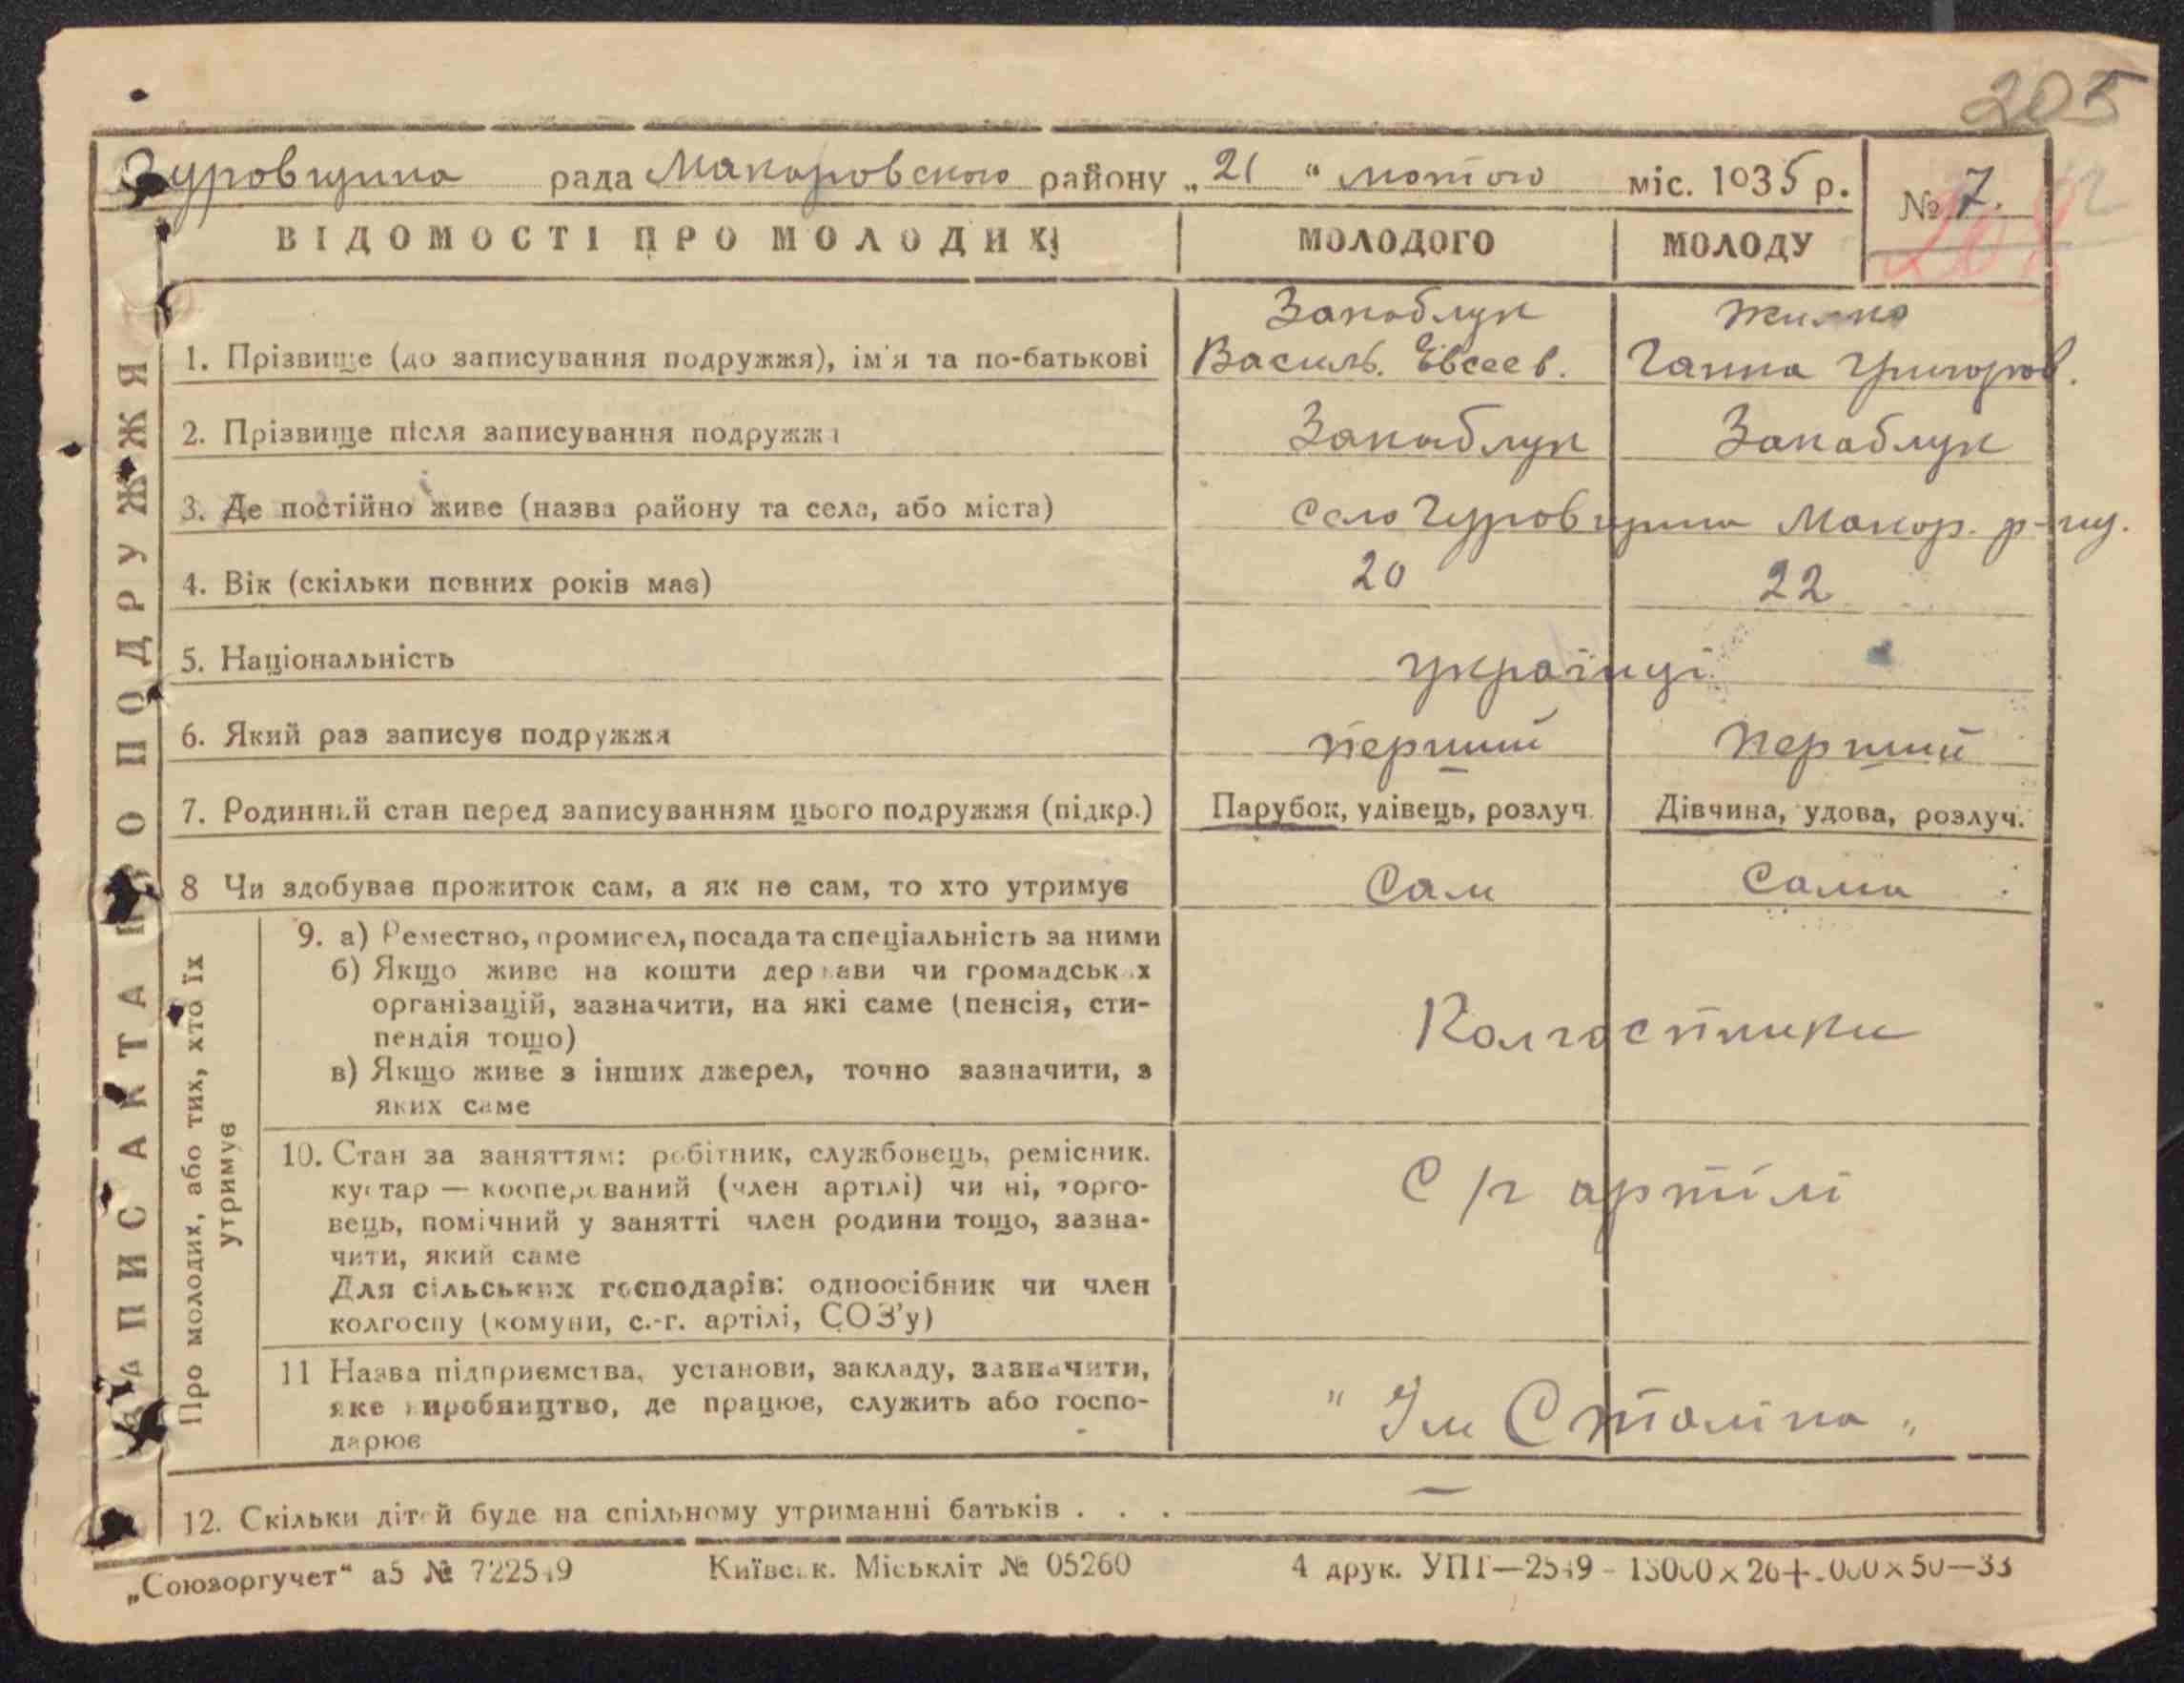 205
Гуровщина рада Макаровского району „21“ лютого міс. 1935 р. № 7.
ВІДОМОСТІ ПРО МОЛОДИХ МОЛОДОГО МОЛОДУ
Закаблук
1. Прізвище (до записування подружжя), ім'я та по-батькові Василь. Евсеев. Ганна Григоров.
2. Прізвище після записування подружжя Закаблук Закаблук
3. Де постійно живе (назва району та села, або міста) село Гуровщина Макар. р-ну.
4. Вік (скільки повних років має) 20 22
5. Національність українці
6. Який раз записує подружжя перший перший
7. Родинний стан перед записуванням цього подружжя (підкр.) Парубок, удівець, розлуч. Дівчина, удова, розлуч.
8 Чи здобуває прожиток сам, а як не сам, то хто утримує Сам Сама
9. а) Ремество, промисел, посада та спеціальність за ними
б) Якщо живе на кошти держави чи громадських
організацій, зазначити, на які саме (пенсія, сти-
пендія тощо)
в) Якщо живе з інших джерел, точно зазначити, з
яких саме
Колгоспники
10. Стан за заняттям: робітник, службовець, ремісник.
кустар — кооперований (член артілі) чи ні, торго-
вець, помічний у занятті член родини тощо, зазна-
чити, який саме
Для сільських господарів: одноосібник чи член
колгоспу (комуни, с.-г. артілі, СОЗ'у)
С/г артілі
11 Назва підприємства, установи, закладу, зазначити,
яке виробництво, де працює, служить або госпо-
дарює
"Ім Сталіна"
12. Скільки дітей буде на спільному утриманні батьків . . . —
ЗАПИС АКТА ПРО ПОДРУЖЖЯ
Про молодих, або тих, хто їх
утримує
„Союзоргучет“ а5 № Київськ. Міськліт № 05260 4 друк. УПП